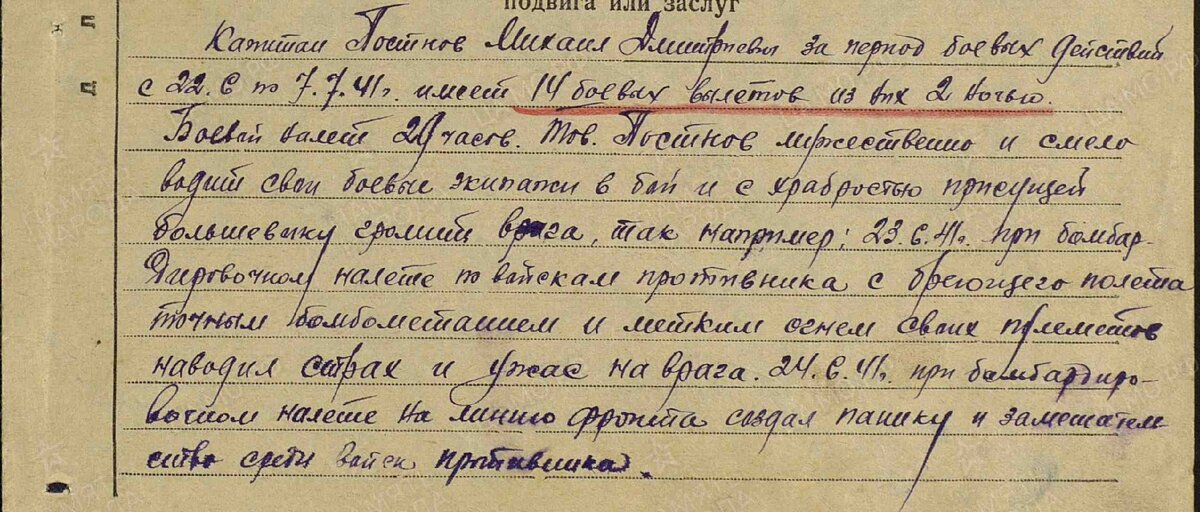 подвига или заслуг
Капитан Постнов Михаил Дмитриевич за период боевых действий
с 22.6 по 7.7.41г. имеет 14 боевых вылетов из них 2 ночью.
Боевой налет часов. Тов. Постнов мужественно и смело
водит свои боевые экипажи в бой и с храбростью присущей
большевику громит врага, так например: 23.6.41г. при бомбар-
дировочном налете по войскам противника с бреющего полета
точным бомбометанием и метким огнем своих пулеметов
наводил страх и ужас на врага. 24.6.41г. при бомбардиро-
вочном налете на линию фронта создал панику и замешатель
ство среди войск противника.